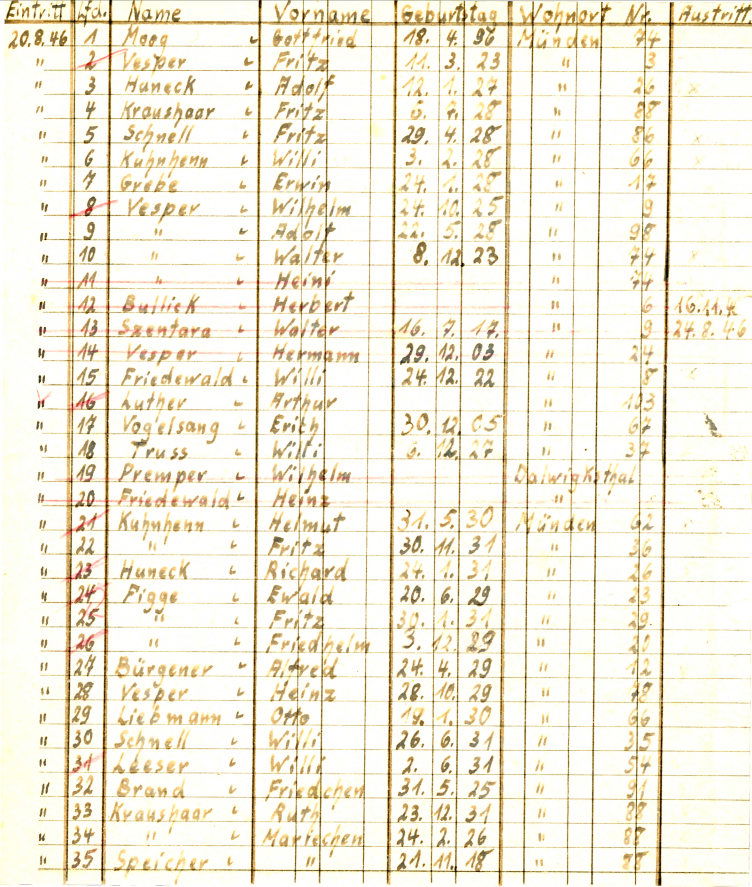 Eintritt Lfd. Name Vorname Geburtstag Wohnort Nr. Austritt
20.8.46 1 Moog Gottfried 18. 4. 96 Münden 74
" 2 Vesper Fritz 11. 3. 23 " 3
" 3 Huneck Adolf 12. 1. 27 " 26
" 4 Kraushaar Fritz 6. 7. 28 " 88
" 5 Schnell Fritz 29. 4. 28 " 86
" 6 Kuhnhenn Willi 3. 2. 28 " 66
" 7 Grebe Erwin 24. 1. 28 " 17
" 8 Vesper Wilhelm 24. 10. 25 " 9
" 9 " Adolf 22. 5. 28 " 98
" 10 " Walter 8. 12. 23 " 74
" 11 " Heini " 74
" 12 Bullick Herbert " 6 16.11.
" 13 Szentara Walter 16. 7. 17. " 9 24.8.46
" 14 Vesper Hermann 29. 12. 03 " 24
" 15 Friedewald Willi 24. 12. 22 " 8
" 16 Luther Arthur " 123
" 17 Vogelsang Erich 30. 12. 05 " 67
" 18 Truss Willi 12. 27 " 37
" 19 Premper Wilhelm Dalwigksthal
" 20 Friedewald Heinz "
" 21 Kuhnhenn Helmut 31. 5. 30 Münden 62
" 22 " Fritz 30. 11. 31 " 36
" 23 Huneck Richard 24. 1. 31 " 26
" 24 Figge Ewald 20. 6. 29 " 23
" 25 " Fritz 30. 1. 31 " 29
" 26 " Friedhelm 3. 12. 29 " 20
" 27 Bürgener Alfred 24. 4. 29 " 12
" 28 Vesper Heinz 28. 10. 29 " 78
" 29 Liebmann Otto 19. 1. 30 " 66
" 30 Schnell Willi 26. 6. 31 " 35
" 31 Leeser Willi 2. 6. 31 " 54
" 32 Brand Friedchen 31. 5. 25 " 91
" 33 Kraushaar Ruth 23. 12. 31 " 88
" 34 " Mariechen 24. 2. 26 " 88
" 35 Speicher " 21. 11. 18 " 88